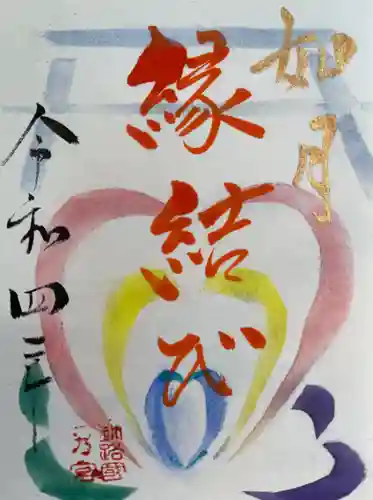 如月
縁結び
令和四
釧路國
一之宮